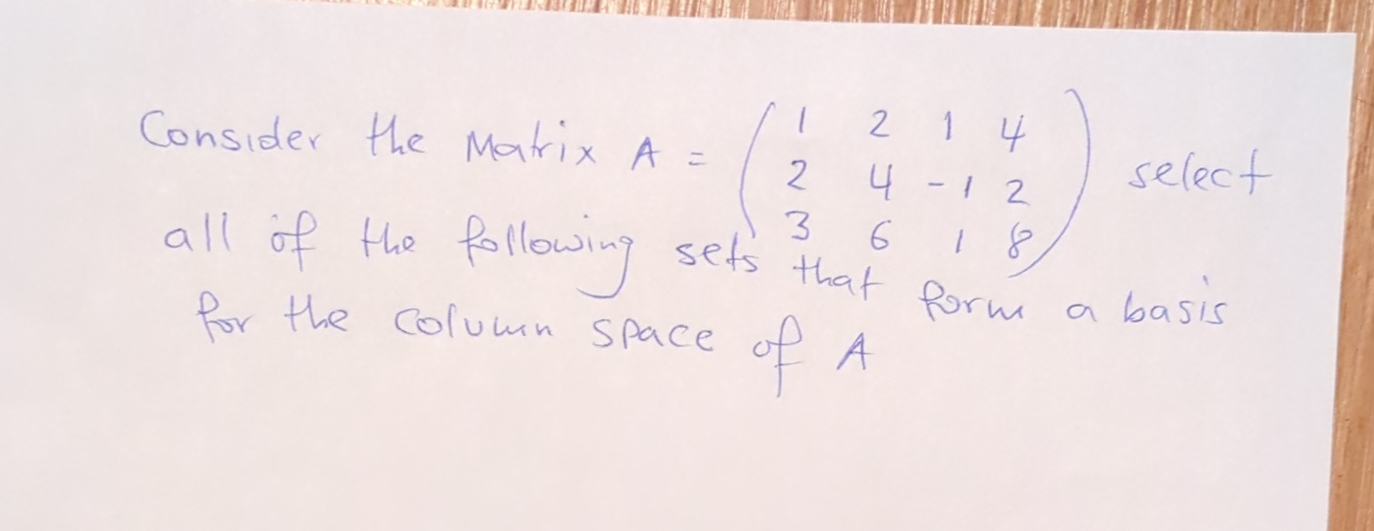 Consider the Matrix A = ( 1 2 1 4 ) select
2 4 -1 2
3 6 1 8
all of the following sets that form a basis
for the column space of A